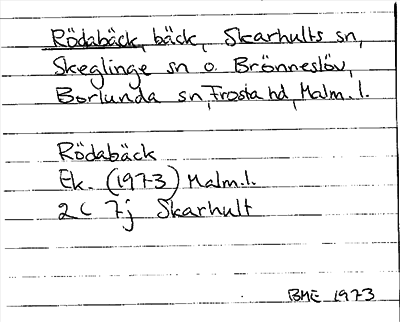 Rödabäck, bäck, Skarhults sn,
Skeglinge sn o. Brönneslöv,
Borlunda sn, Frosta hd, Malm. l.
Rödabäck
Ek. (1973) Malm. l.
2 C 7j Skarhult
BME 1973